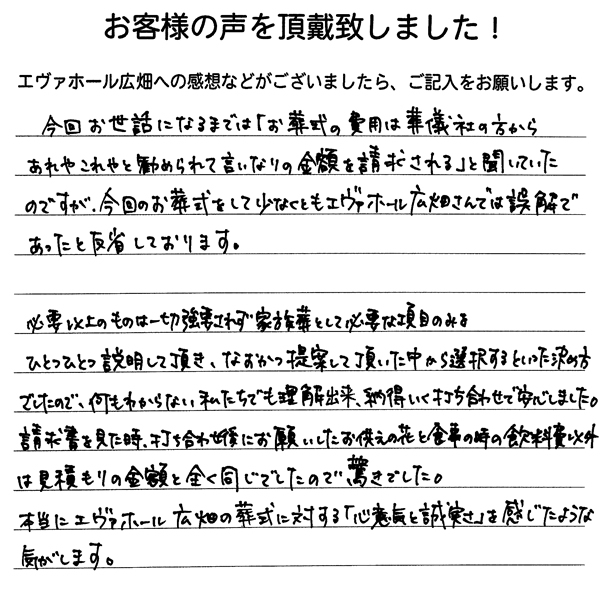 お客様の声を頂戴致しました！
エヴァホール広畑への感想などがございましたら、ご記入をお願いします。
今回お世話になるまでは「お葬式の費用は葬儀社の方から
あれやこれやと勧められて言いなりの金額を請求される」と聞いていた
のですが、今回のお葬式をして少なくともエヴァホール広畑さんでは誤解で
あったと反省しております。
必要以上のものは一切強要されず家族葬として必要な項目のみを
ひとつひとつ説明して頂き、なおかつ提案して頂いた中から選択するといった決め方
でしたので、何もわからない私たちでも理解出来、納得いく打ち合わせで安心しました。
請求書を見た時、打ち合わせ後にお願いしたお供えの花と食事の時の飲料費以外
は見積もりの金額と全く同じでしたので驚きでした。
本当にエヴァホール広畑の葬式に対する「心意気と誠実さ」を感じたような
気がします。